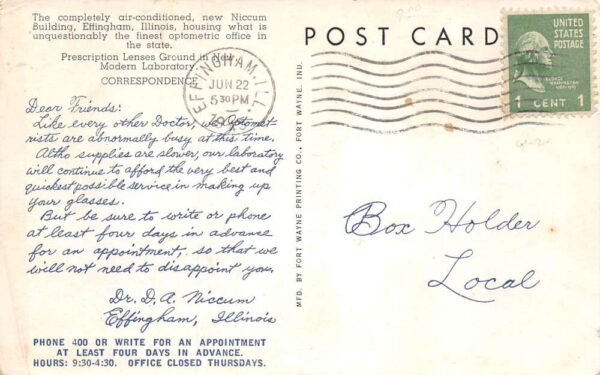 The completely air-conditioned, new Niccum
Building, Effingham, Illinois, housing what is
unquestionably the finest optometric office in
the state.
Prescription Lenses Ground in New,
Modern Laboratory.
CORRESPONDENCE
Dear Friends:
Like every other Doctor, we Optomet-
rists are abnormally busy at this time.
Altho supplies are slower, our laboratory
will continue to afford the very best and
quickest possible service in making up
your glasses.
But be sure to write or phone
at least four days in advance
for an appointment, so that we
will not need to disappoint you.
Dr. D. A. Niccum
Effingham, Illinois
PHONE 400 OR WRITE FOR AN APPOINTMENT
AT LEAST FOUR DAYS IN ADVANCE.
HOURS: 9:30-4:30. OFFICE CLOSED THURSDAYS.
MFD. BY FORT WAYNE PRINTING CO., FORT WAYNE, IND.
POST CARD
EFFINGHAM, ILL.
JUN 22
5 30 PM
UNITED
STATES
POSTAGE
GEORGE
WASHINGTON
1 CENT 1
Box Holder
Local